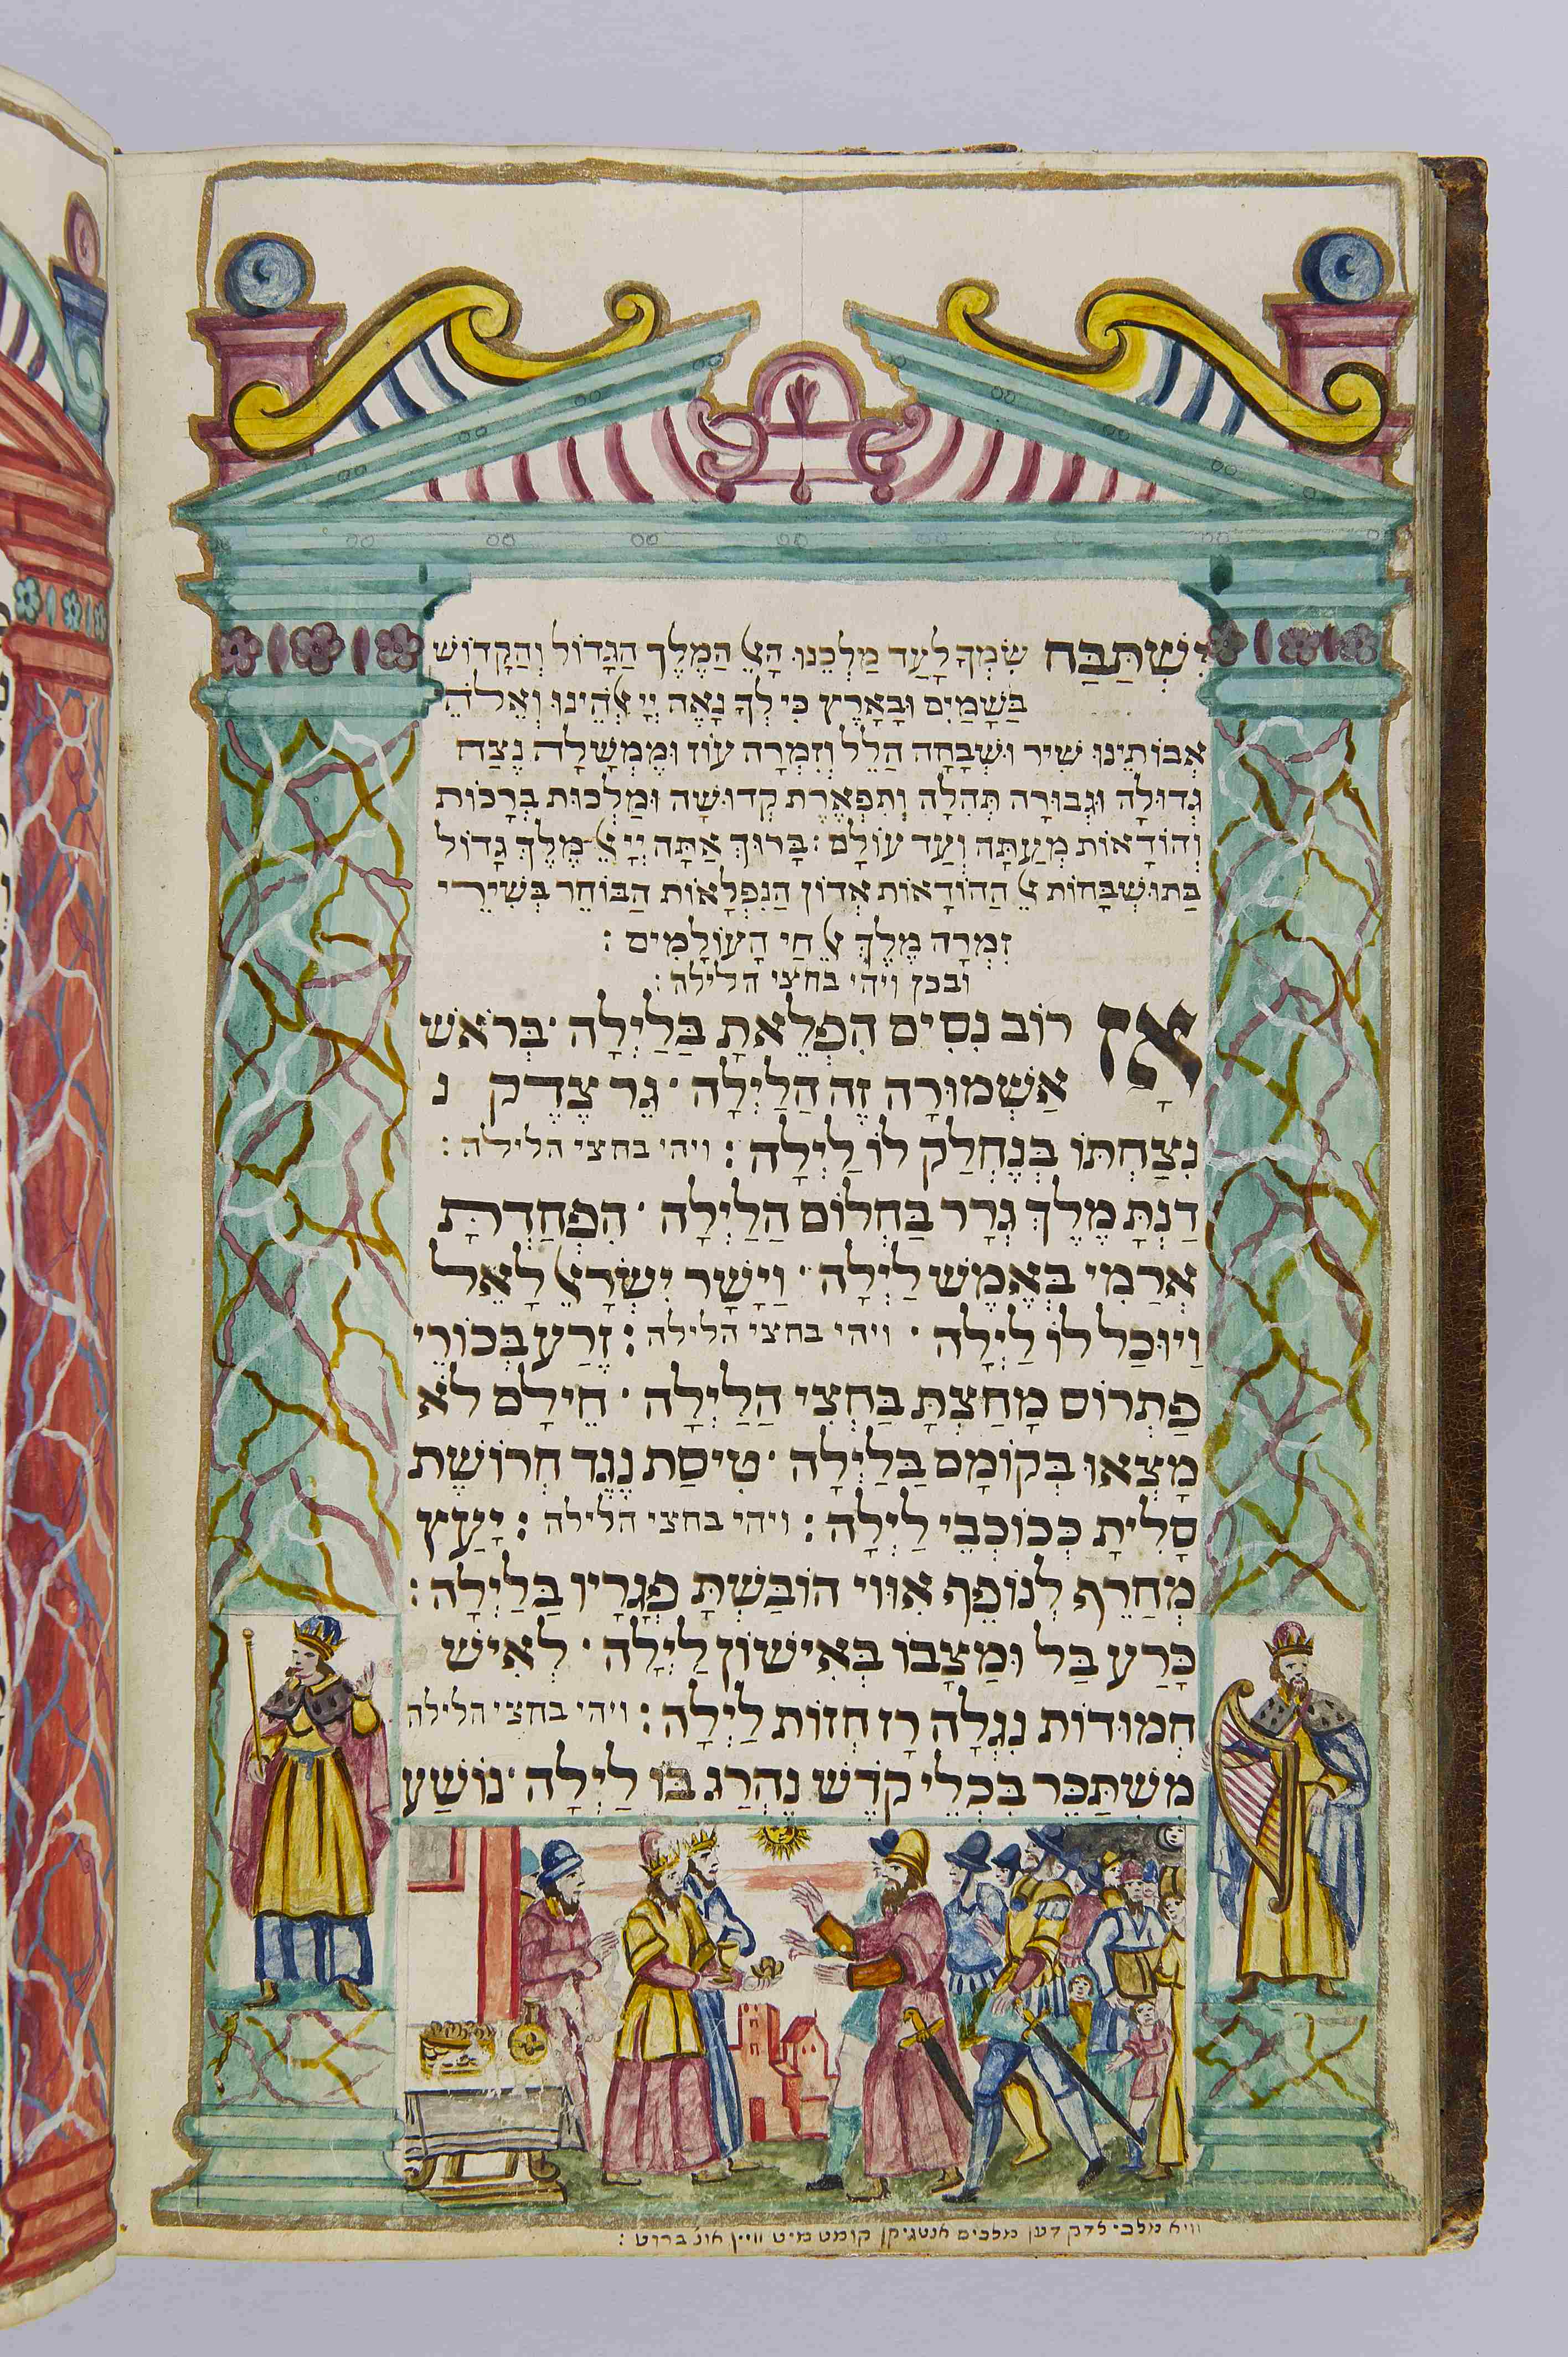 יִשְׁתַּבַּח שִׁמְךָ לָעַד מַלְכֵּנוּ הָאֵל הַמֶלֶךְ הַגָדוֹל וְהַקָדוֹשׁ
בַּשָׁמַיִם וּבָאָרֶץ כִּי לְךָ נָאֶה יְיָ אֱלֹהֵינוּ וְאֵלֹהֵ
אֲבוֹתֵינוּ שִׁיר וּשְׁבָחָה הַלֵל וְזִמְרָה עוֹז וּמֶמְשָׁלָה נֶצַח
גְדוּלָה וּגְבוּרָה תְּהִלָה וְתִפְאֶרֶת קְדוּשָׁה וּמַלְכוּת בְּרָכוֹת
וְהוֹדָאוֹת מֵעַתָּה וְעַד עוֹלָם : בָּרוּךְ אַתָּה יְיָ אֵל מֶלֶךְ גָדוֹל
בַּתּוּשְׁבָּחוֹת אֵל הַהוֹדָאוֹת אֲדוֹן הַנִפְלָאוֹת הַבּוֹחֵר בְּשִׁירֵי
זִמְרָה מֶלֶךְ אֵל חַי הָעוֹלָמִים :
ובכן ויהי בחצי הלילה :
אָז רוֹב נִסִים הִפְלֵאתָ בַּלַיְלָה · בְּרֹאשׁ
אַשְׁמוּרָה זֶה הַלַיְלָה · גֵר צֶדֶק נ
נִצַחְתּוֹ בְּנֶחְלַק לוֹ לַיְלָה : ויהי בחצי הלילה :
דַנְתָּ מֶלֶךְ גְרָר בַּחֲלוֹם הַלַיְלָה · הִפְחַדְתָּ
אֲרַמִי בְּאֶמֶשׁ לַיְלָה · וַיָשַׂר יִשְׂרָאֵל לָאֵל
וַיוּכַל לוֹ לַיְלָה · ויהי בחצי הלילה : זֶרַע בְּכוֹרֵי
פַתְרוֹס מָחַצְתָּ בַּחֲצִי הַלַיְלָה · חֵילָם לֹא
מָצְאוּ בְּקוּמָם בַּלַיְלָה · טִיסַת נְגִד חֲרוֹשֶׁת
סָלִיתָ כְּכוֹכְבֵי לַיְלָה : ויהי בחצי הלילה : יָעַץ
מְחָרֵף לְנוֹפֵף אִוּוּי הוֹבַשְׁתָּ פְגָרָיו בַּלַיְלָה :
כָּרַע בַּל וּמַצָבוֹ בְּאִישׁוֹן לַיְלָה · לְאִישׁ
חֲמוּדוֹת נִגְלָה רָז חֲזוֹת לַיְלָה : ויהי בחצי הלילה
מִשְׁתַּכֵּר בִּכְלֵי קֹדֶשׁ נֶהֱרַג בּוֹ לַיְלָה · נוֹשַׁע
וויא מלכי צדק דען מלכים אנטגיקן קומט מיט וויין אונ' ברוט :